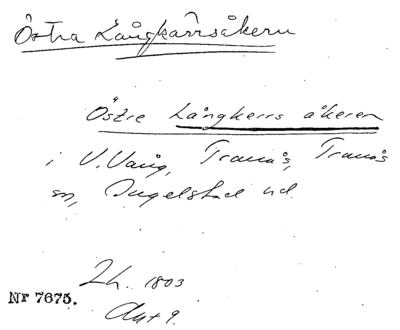 Östra Långkärrsåkern
Östre Långkerrs åkeren
i V. Vång, Tranås, Tranås
sn, Ingelstad hd.
Lh. 1803
Nr 7675.
Akt 9.